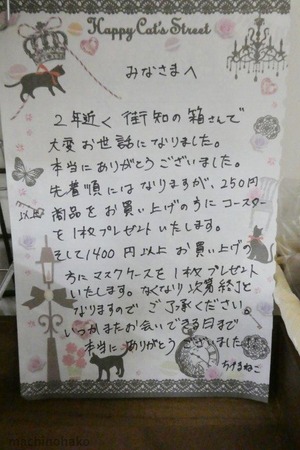 Happy Cat's Street
みなさまへ
2年近く街知の箱さんで
大変お世話になりました。
本当にありがとうございました。
先着順にはなりますが、250円
以上商品をお買い上げの方にコースター
を1枚プレゼントいたします。
そして1400円以上お買い上げの
方にマスクケースを1枚プレゼント
いたします。なくなり次第終了と
なりますのでご了承ください。
いつかまたお会いできる日まで
本当にありがとうございました
ちよねこ
machinohako